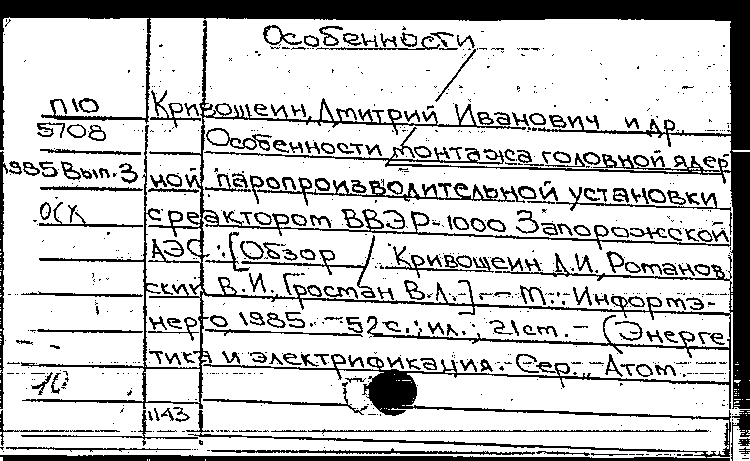 Особенности
П10 Кривошеин, Дмитрий Иванович и др.
5708 Особенности монтажа головной ядер
1985 Вып. 3 ной паропроизводительной установки
ОСК с реактором ВВЭР-1000 Запорожской
АЭС : [Обзор / Кривошеин Д.И., Романов
ский В.И., Гростан В.Л.]. - М.: Информэ-
нерго, 1985. - 52с.: ил.; 21см. - (Энерге
тика и электрификация. Сер. Атом.
10
1143